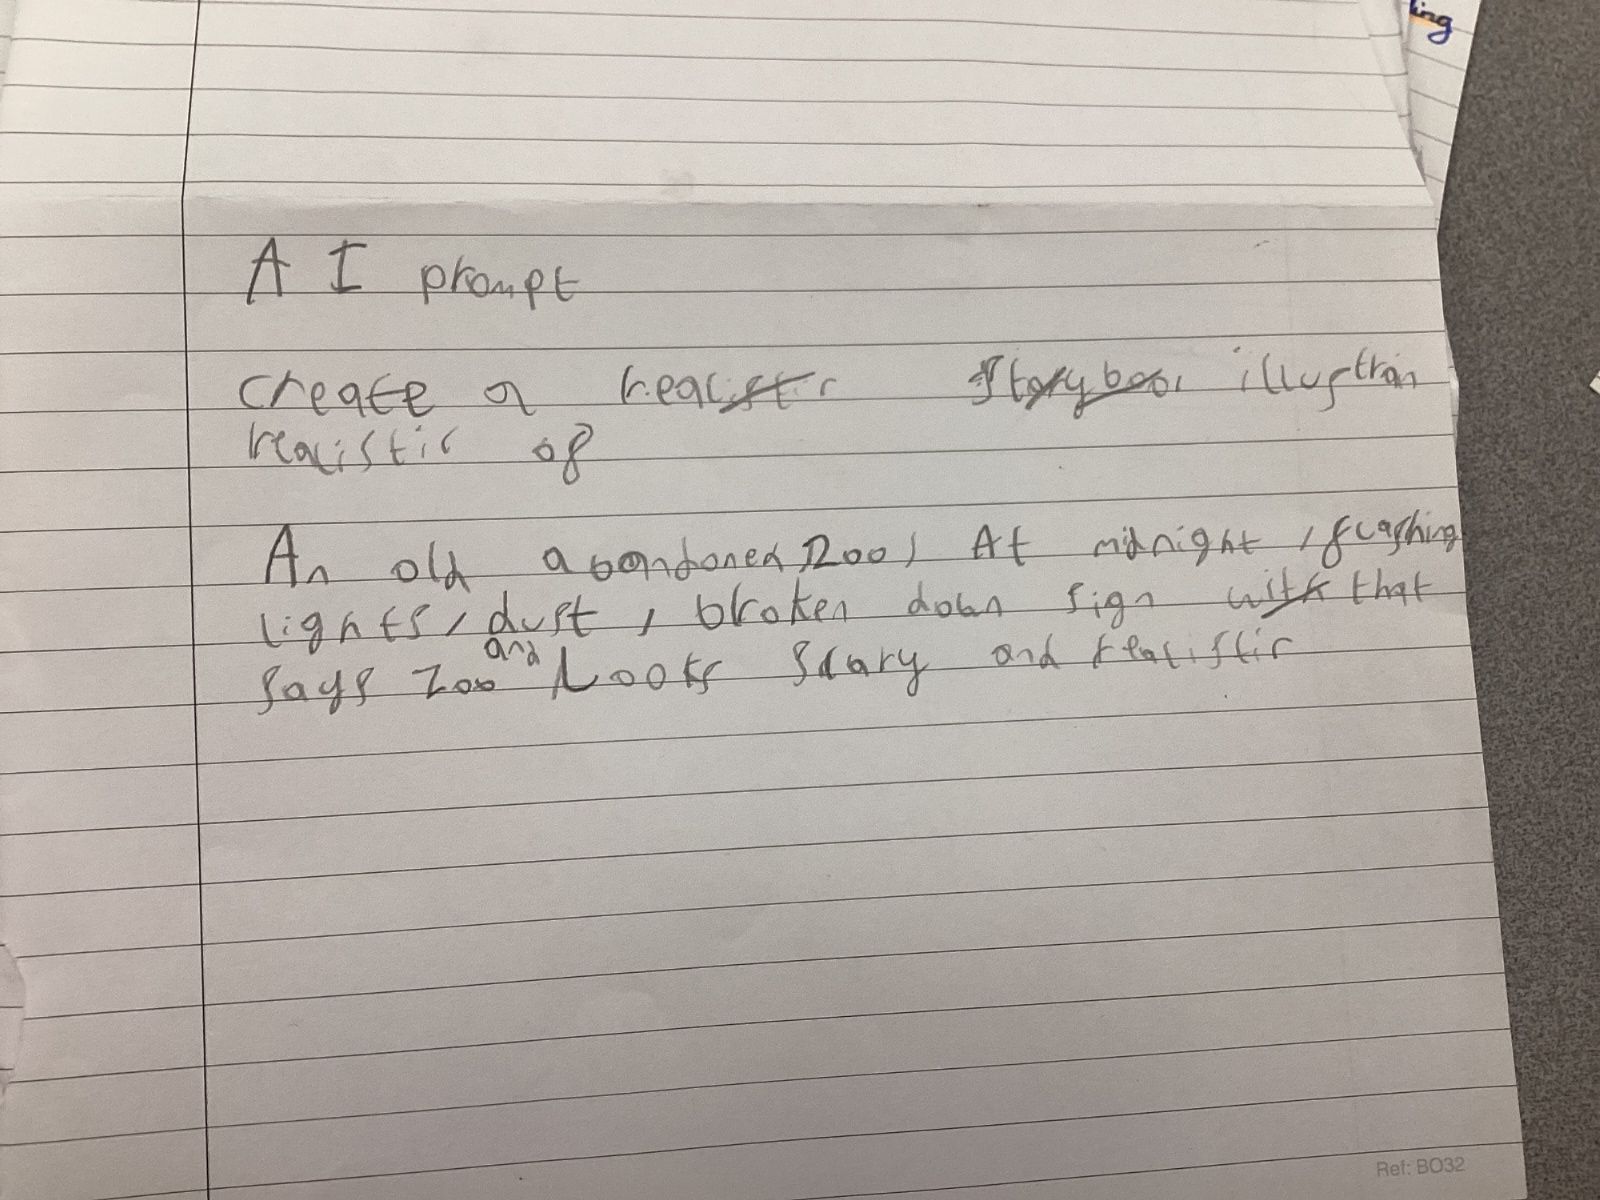 ing
A I prompt
create a realistic storyboo illustran
realistic of
An old abandoned zoo, At midnight, flashing
lights, dust, broken down sign with that
says zoo and Looks scary and realistic
Ref: BO32